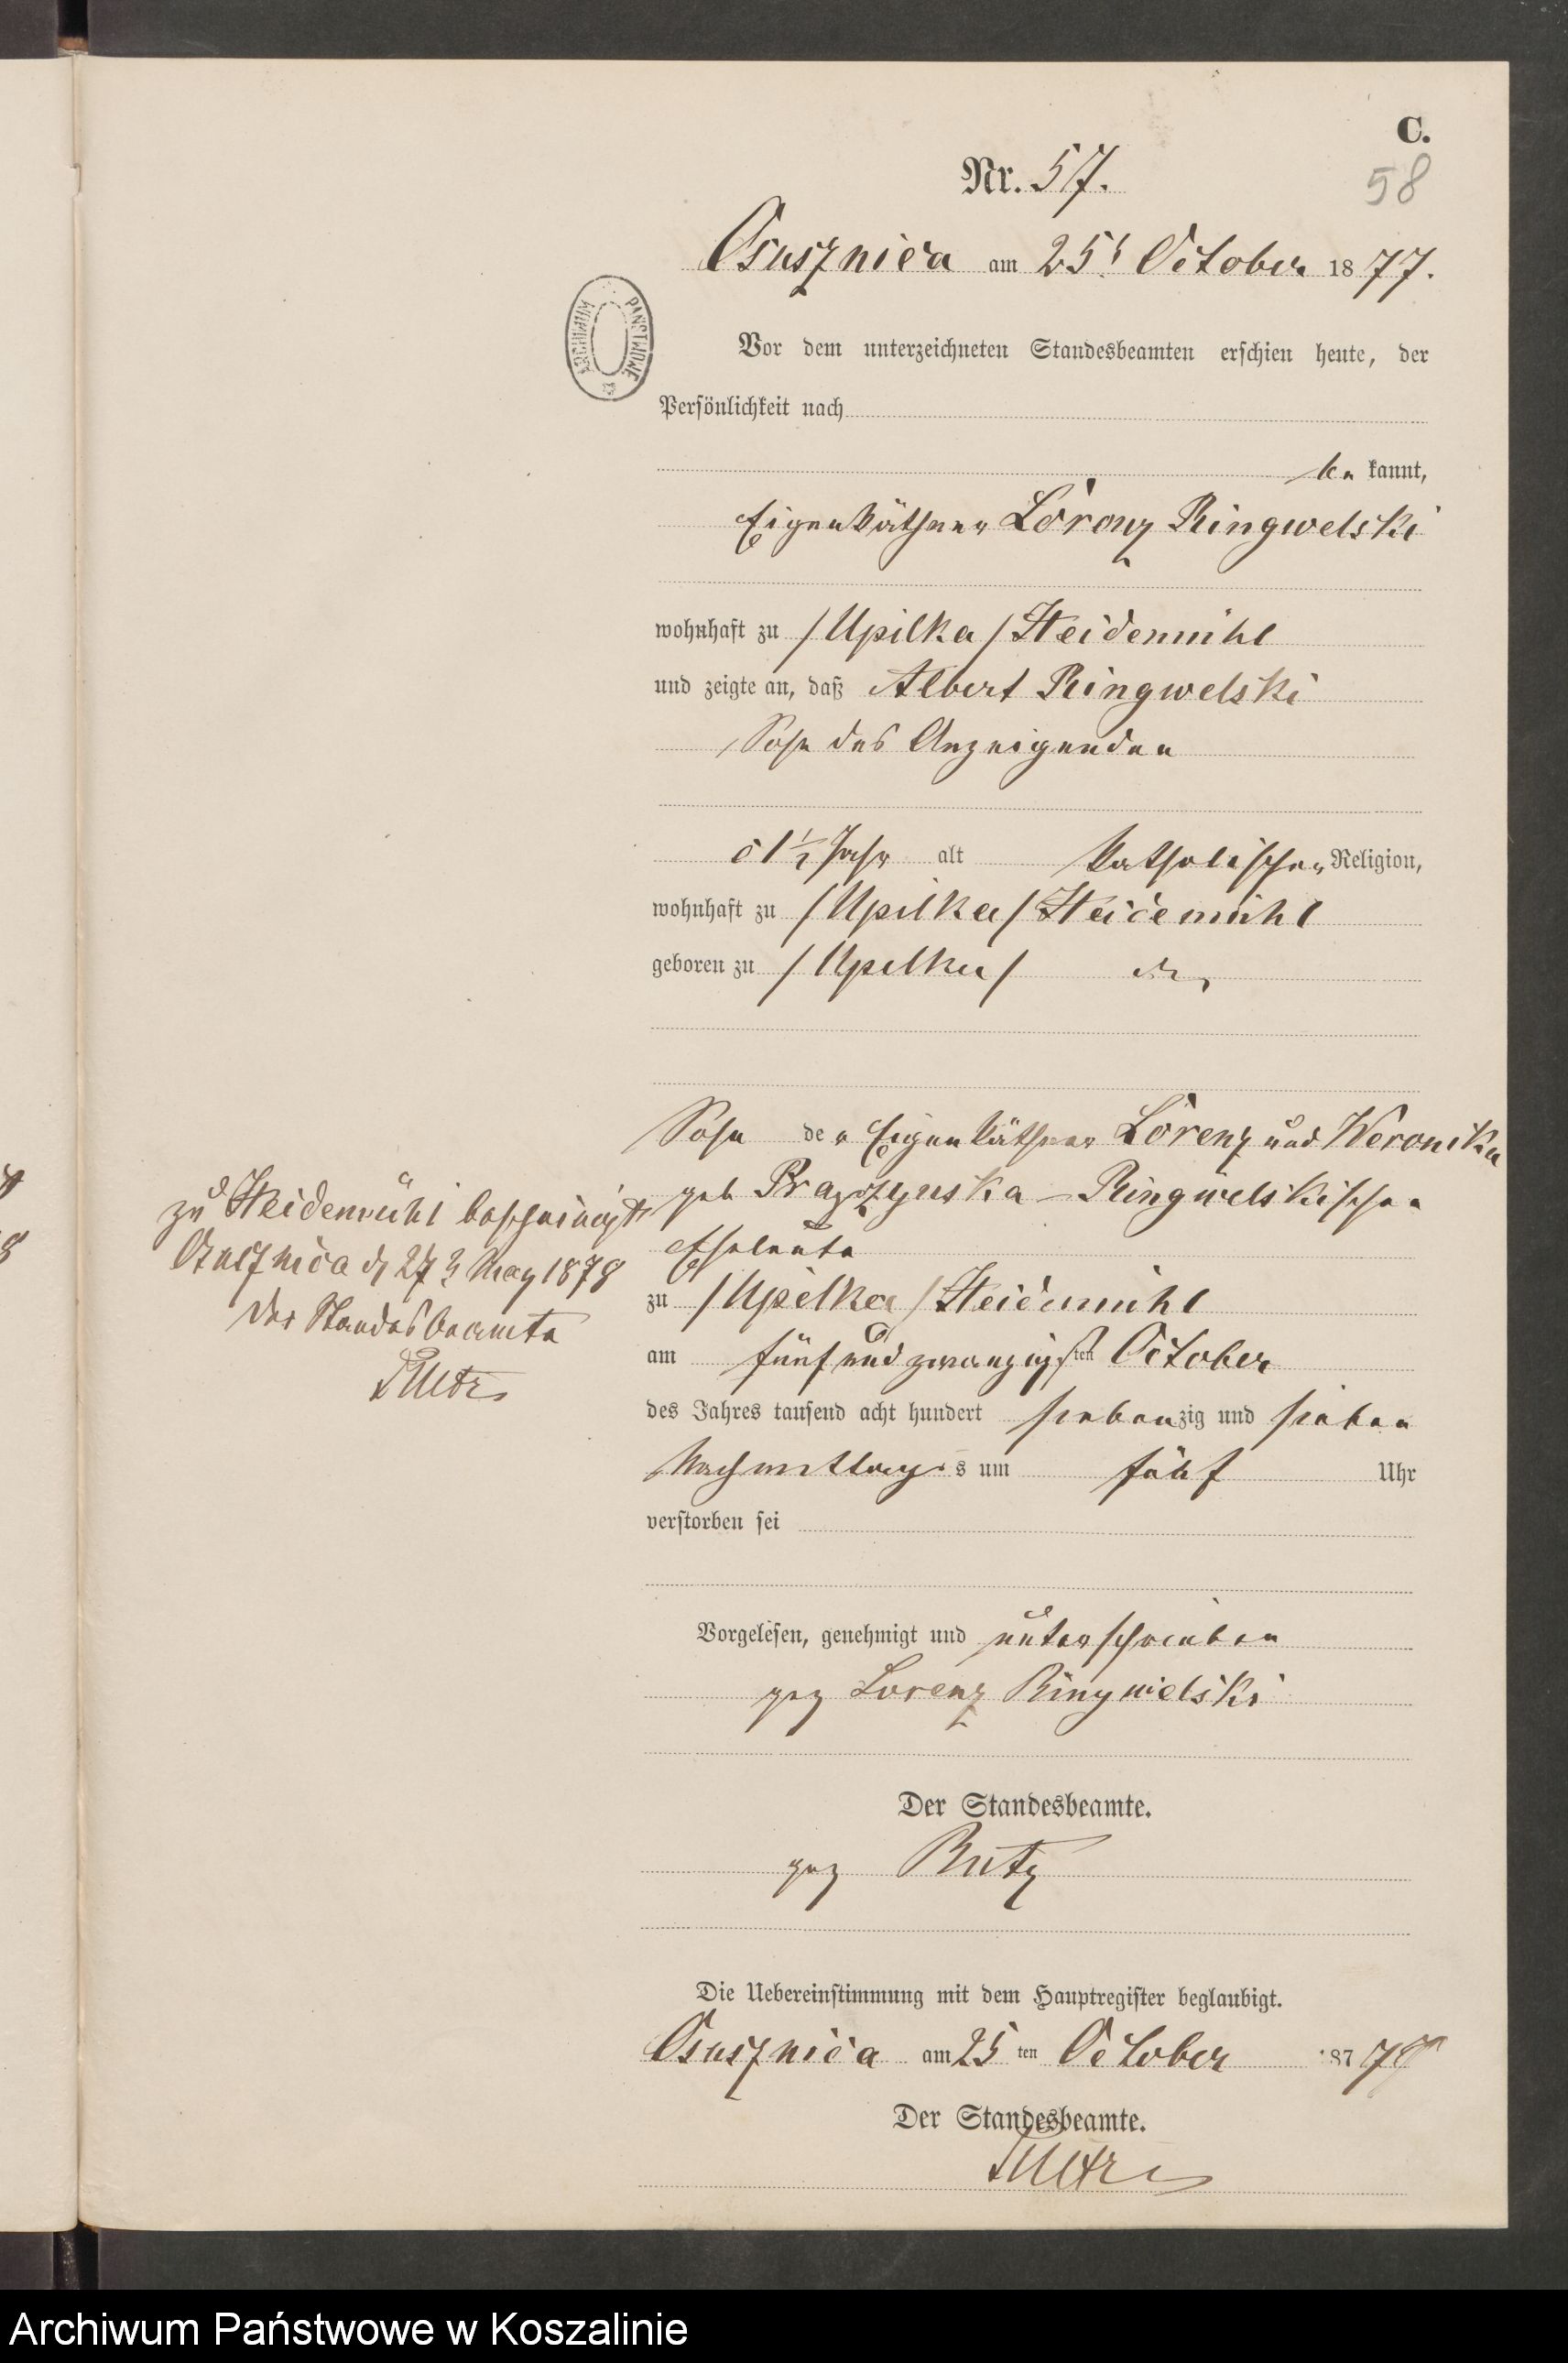 C.
Nr. 57.
58
Osusznica am 25t October 1877.
ARCHIWUM PAŃSTWOWE
Vor dem unterzeichneten Standesbeamten erschien heute, der
Persönlichkeit nach
be kannt,
Eigenkäthner Lorenz Ringwelski
wohnhaft zu /Upilka/ Heidemühl
und zeigte an, daß Albert Ringwelski
Sohn des Anzeigenden
1½ Jahr alt katholischer Religion,
wohnhaft zu /Upilka/ Heidemühl
geboren zu /Upilka/
Sohn der Eigenkäthner Lorenz und Weronika
geb Ringwelskischen
Eheleute
zu /Upilka/ Heidemühl
am fünf und zwanzigsten October
des Jahres tausend acht hundert siebenzig und sieben
Nachmittags um fünf Uhr
verstorben sei
zu Heidemühl bescheinigt
Osusznica d 27 May 1878
Der Standesbeamte
Vorgelesen, genehmigt und unterschrieben
gez Lorenz Ringwelski
Der Standesbeamte.
gez
Die Uebereinstimmung mit dem Hauptregister beglaubigt.
Osusznica am 25 ten October
Der Standesbeamte.
Archiwum Państwowe w Koszalinie